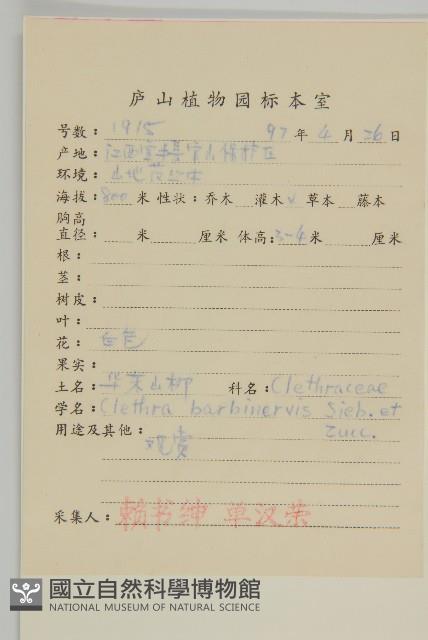 庐山植物园标本室
号数: 1915 97年4月26日
产地: 江西宜丰县官山保护区
环境: 山地
海拔: 800 米 性状: 乔木 灌木 v 草本 藤本
胸高
直径: 米 厘米 体高: 3-4 米 厘米
根:
茎:
树皮:
叶:
花: 白色
果实:
土名: 华东山柳 科名: Clethraceae
学名: Clethra barbinervis Sieb. et
Zucc.
用途及其他: 观赏
采集人: 赖书绅 单汉荣
國立自然科學博物館
NATIONAL MUSEUM OF NATURAL SCIENCE